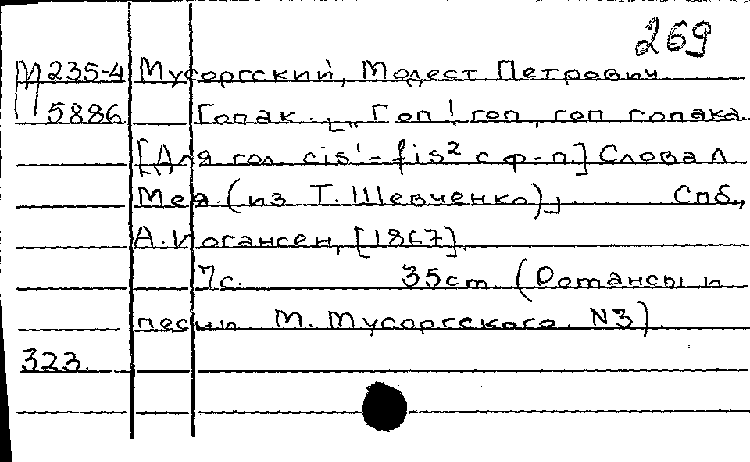 269
М 235-4 Мусоргский, Модест Петрович
5886 Гопак. „Гоп! гоп, гоп гопака.
[Для гол. cis¹ - fis² с ф-п.] Слова Л
Мея (из Т. Шевченко), Спб.,
А. Иогансен, [1867].
7с. 35cm (Романсы и
песни М. Мусоргского. N3).
323.